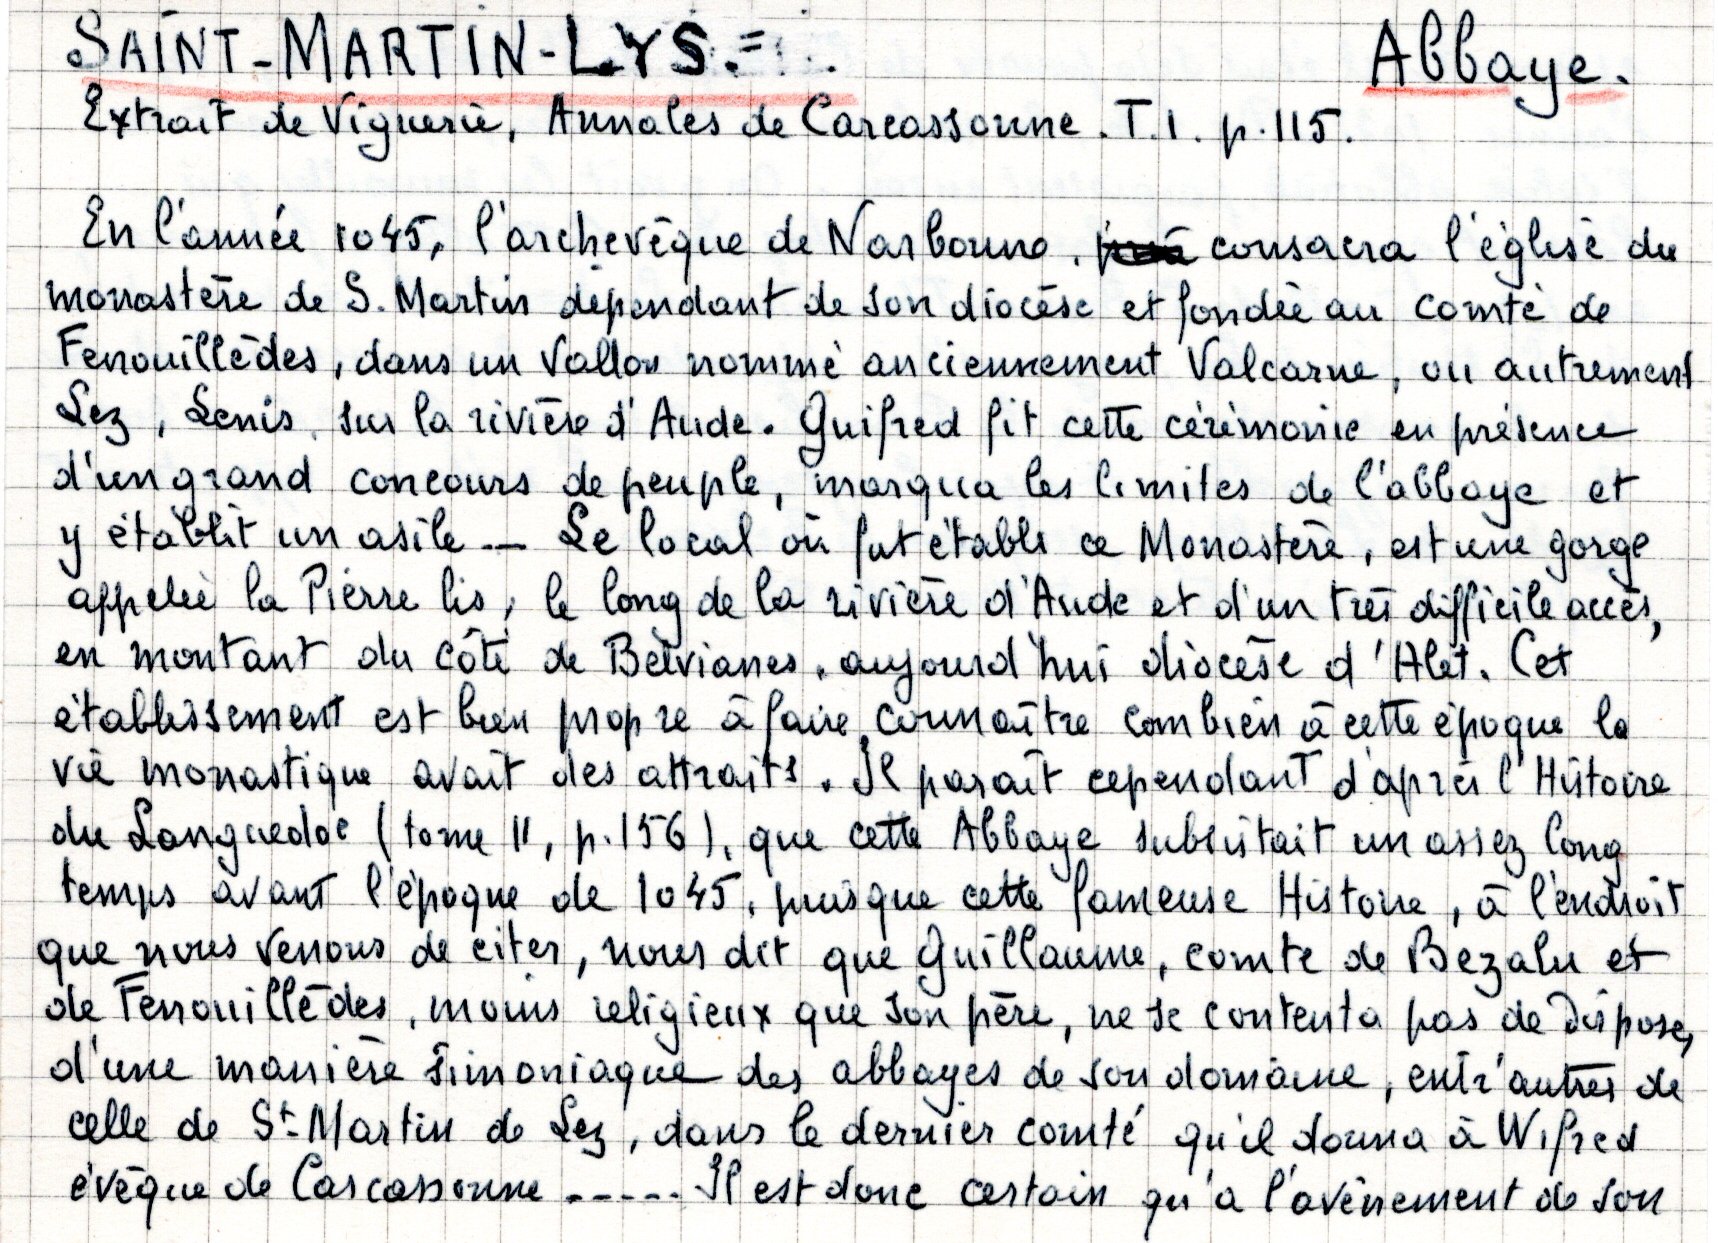 SAINT-MARTIN-LYS.= Abbaye.
Extrait de Viguerie, Annales de Carcassonne. T.1. p.115.
En l'année 1045, l'archevêque de Narbonne, consacra l'église du
monastère de S. Martin dépendant de son diocèse et fondée au comté de
Fenouillèdes, dans un vallon nommé anciennement Valcarne, ou autrement
Lez, Lenis, sur la rivière d'Aude. Guifred fit cette cérémonie en présence
d'un grand concours de peuple, marqua les limites de l'abbaye et
y établit un asile -- Le local où fut établi ce Monastère, est une gorge
appelée la Pierre lis, le long de la rivière d'Aude et d'un très difficile accès,
en montant du côté de Belvianes, aujourd'hui diocèse d'Alet. Cet
établissement est bien propre à faire connaître combien à cette époque la
vie monastique avait des attraits. Il paraît cependant d'après l'Histoire
du Languedoc (tome II, p.156), que cette Abbaye subsistait un assez long
temps avant l'époque de 1045, puisque cette fameuse Histoire, à l'endroit
que nous venons de citer, nous dit que Guillaume, comte de Bezalu et
de Fenouillèdes, moins religieux que son père, ne se contenta pas de dispose,
d'une manière simoniaque des abbayes de son domaine, entr'autres de
celle de St Martin de Lez, dans le dernier comté qu'il donna à Wifred
évêque de Carcassonne ----- Il est donc certain qu'a l'avènement de son